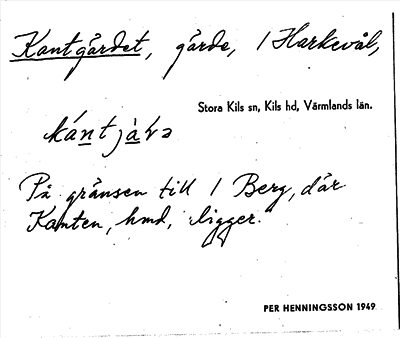 Kantgärdet, gärde, / Harkevål,
Stora Kils sn, Kils hd, Värmlands län.
kántjàrə
På gränsen till / Berg, där
Kanten, hmd, ligger.
PER HENNINGSSON 1949